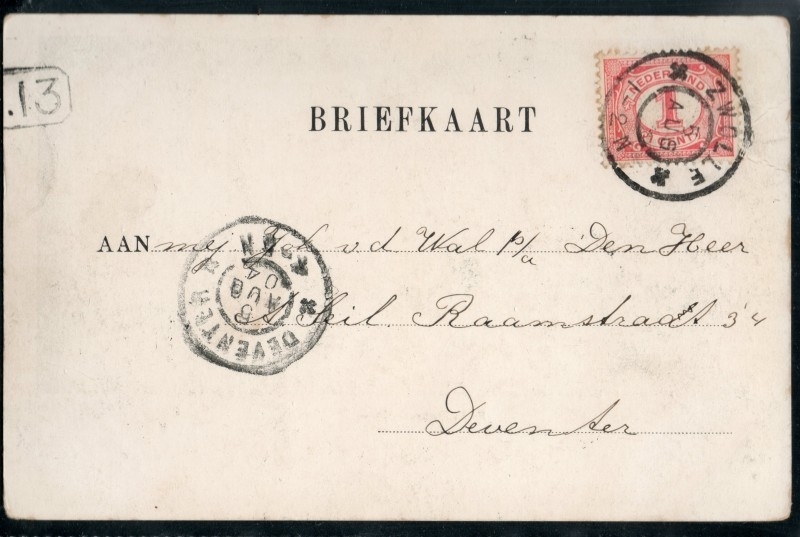 .13
BRIEFKAART
NEDERLAND
1
CENT
ZWOLLE
AUG
12-1N
AAN mej Joh v d Wal p/a Den Heer
Raamstraat 34
Deventer
DEVENTER
5
AUG
04